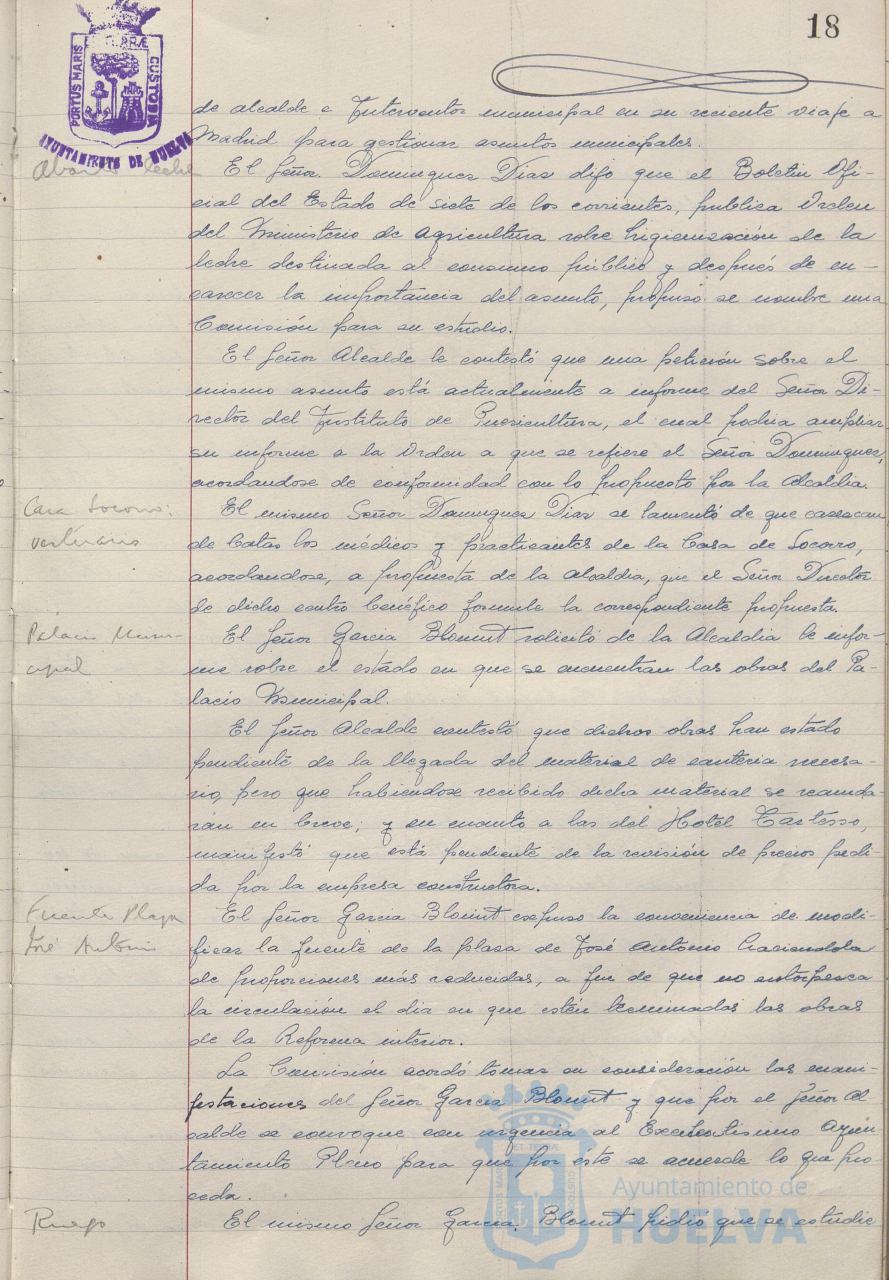 18
PORTUS MARIS
ET TERRÆ
CUSTODIA
AYUNTAMIENTO DE HUELVA
de alcalde e Interventor municipal en su reciente viaje a
Madrid para gestionar asuntos municipales.
Abasto leche
El Señor Dominguez Dias dijo que el Boletin Ofi-
cial del Estado de siete de los corrientes, publica Orden
del Ministerio de Agricultura sobre higienización de la
leche destinada al consumo público y después de en-
carecer la importancia del asunto, propuso se nombre una
Comisión para su estudio.
El Señor Alcalde le contestó que una petición sobre el
mismo asunto está actualmente a informe del Señor Di-
rector del Instituto de Puericultura, el cual podria ampliar
su informe a la Orden a que se refiere el Señor Dominguez,
acordandose de conformidad con lo propuesto por la Alcaldia.
Casa Socorro:
vestuario
El mismo Señor Dominguez Dias se lamentó de que carezcan
de batas los médicos y practicantes de la Casa de Socorro,
acordandose, a propuesta de la alcaldia, que el Señor Director
de dicho centro benéfico formule la correspondiente propuesta.
Palacio Muni-
cipal
El Señor Garcia Blount solicitó de la Alcaldia le infor-
me sobre el estado en que se encuentran las obras del Pa-
lacio Municipal.
El Señor Alcalde contestó que dichas obras han estado
pendiente de la llegada del material de canteria necesa-
rio, pero que habiendose recibido dicho material se reanuda-
rán en breve; y en cuanto a las del Hotel Tartesso,
manifestó que está pendiente de la revisión de precios pedi-
da por la empresa constructora.
Fuente Plaza
José Antonio
El Señor Garcia Blount expuso la conveniencia de modi-
ficar la fuente de la plaza de José Antonio haciendola
de proporciones más reducidas, a fin de que no entorpezca
la circulación el dia en que estén terminadas las obras
de la Reforma interior.
La Comisión acordó tomar en consideración las mani-
festaciones del Señor Garcia Blount y que por el Señor Al-
calde se convoque con urgencia al Excelentisimo Ayun-
tamiento Pleno para que por éste se acuerde lo que pro-
ceda.
Ruego
El mismo Señor Garcia Blount pidió que se estudie
Ayuntamiento de
HUELVA